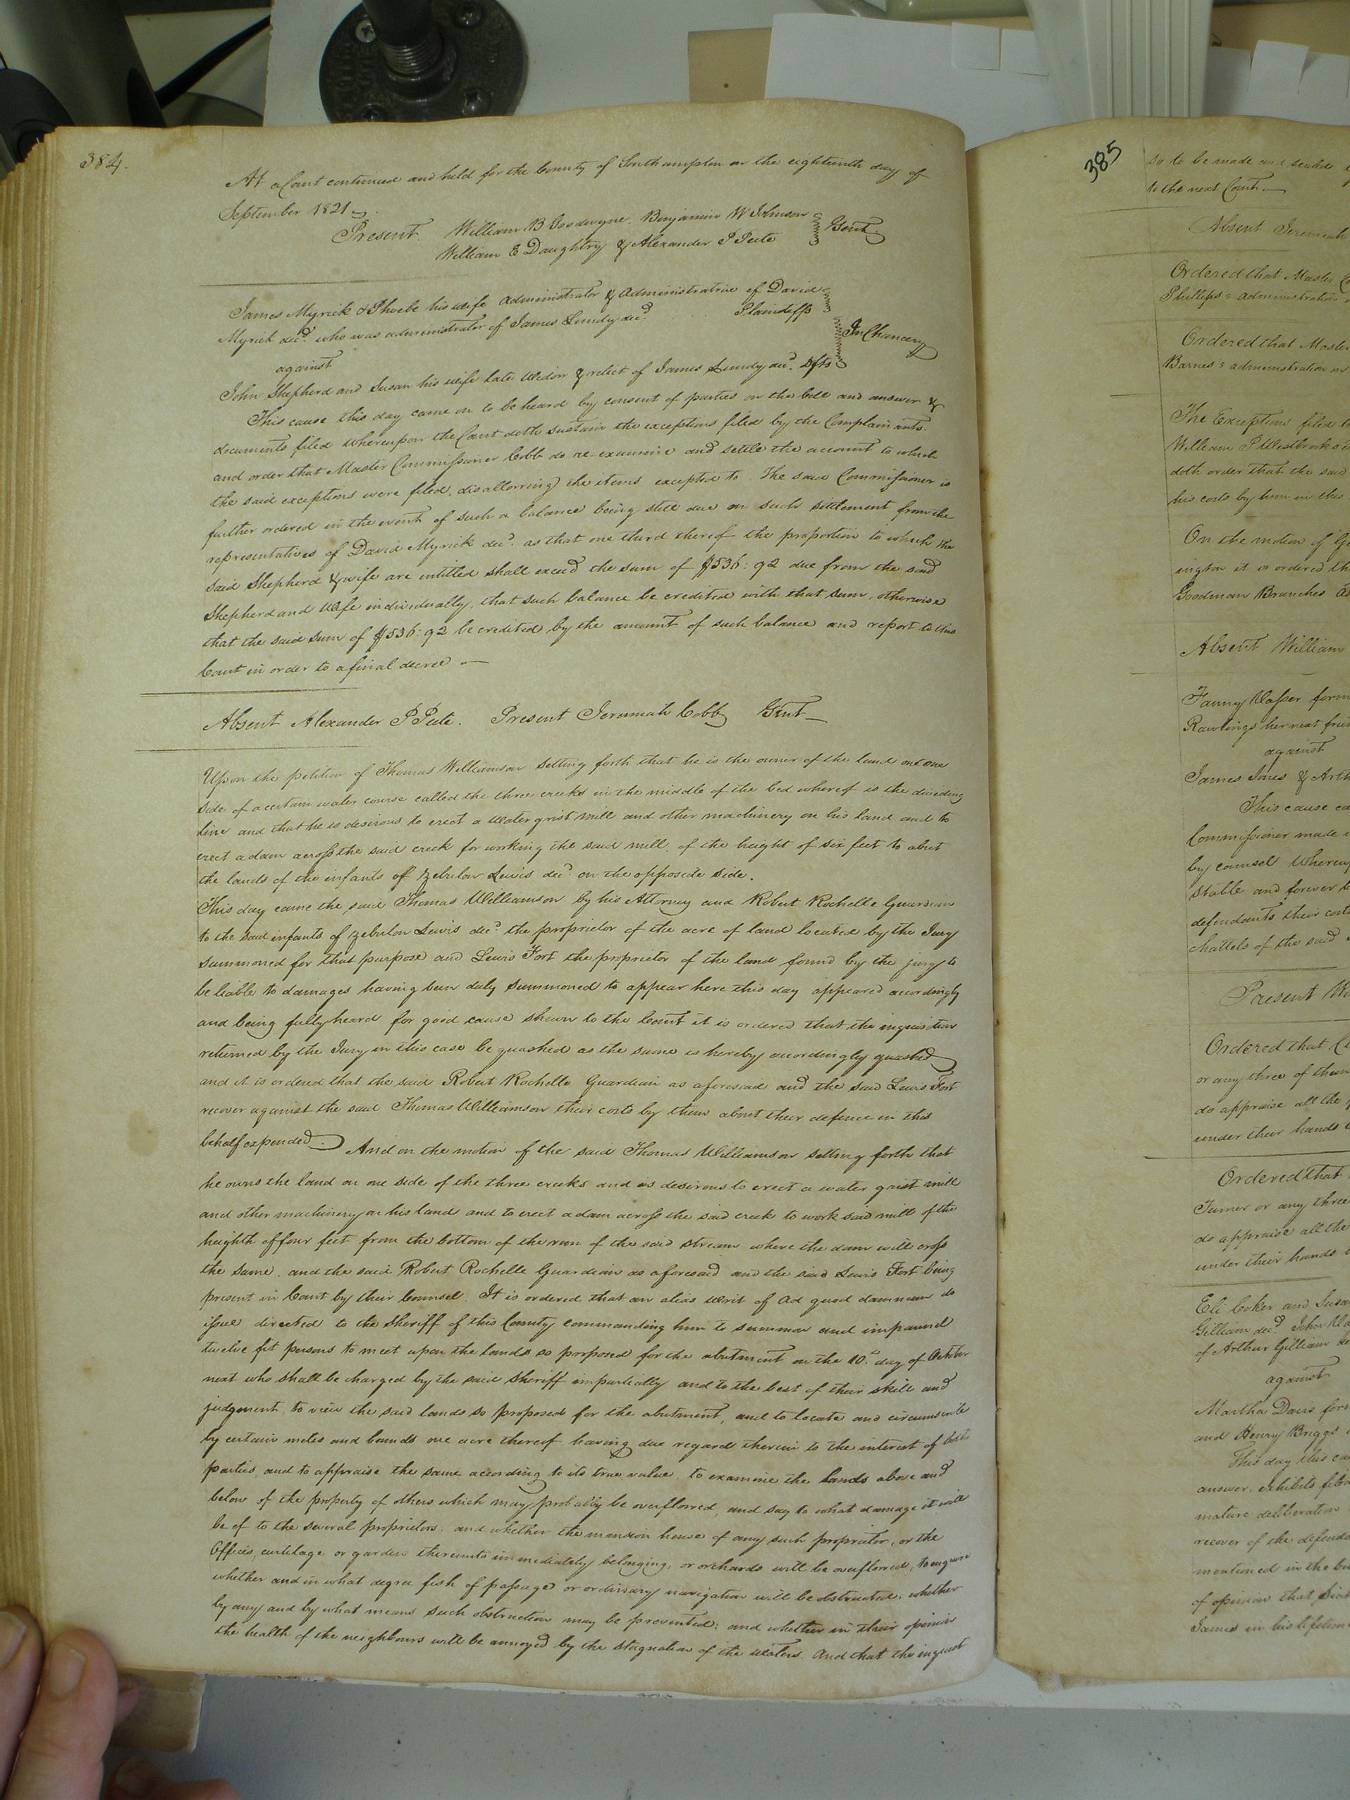 384.
At a Court continued and held for the County of Southampton on the eighteenth day of
September 1821.
Present William B Goodwyne Benjamin W Johnson
William E Daughtry & Alexander P Peete Gent.
James Myrick & Phoebe his wife Administrator & Administratrix of David
Myrick decd. who was administrator of James Lundy decd. Plaintiffs
against In Chancery
John Shepherd and Susan his wife late widow & relict of James Lundy decd. Defts
This cause this day came on to be heard by consent of parties on the bill and answer &
documents filed whereupon the Court doth sustain the exceptions filed by the Complainants.
and order that Master Commissioner Cobb do re-examine and settle the account to which
the said exceptions were filed, disallowing the items excepted to. The said Commissioner is
further ordered in the event of such a balance being still due on such settlement from the
representatives of David Myrick decd. as that one third thereof the proportion to which the
said Shepherd & wife are entitled shall exceed the sum of $536:92 due from the said
Shepherd and Wife individually, that such balance be credited with that sum, otherwise
that the said sum of $536:92 be credited by the amount of such balance and report to this
Court in order to a final decree
Absent Alexander P Peete. Present Jeremiah Cobb Gent
Upon the petition of Thomas Williamson setting forth that he is the owner of the land on one
side of a certain water course called the three creeks in the middle of the bed whereof is the dividing
line and that he is desirous to erect a water grist mill and other machinery on his land and to
erect a dam across the said creek for working the said mill, of the height of six feet to abut
the lands of the infants of Zebulon Lewis decd on the opposide side.
This day came the said Thomas Williamson by his Attorney and Robert Rochelle Guardian
to the said infants of Zebulon Lewis decd. the proprietor of the acre of land located by the Jury
summoned for that purpose and Lewis Fort the proprietor of the land found by the jury to
be liable to damages having been duly summoned to appear here this day appeared accordingly
and being fully heard for good cause shewn to the Court it is ordered that the inquisition
returned by the Jury in this case be quashed as the same is hereby accordingly quashed
and it is ordered that the said Robert Rochelle Guardian as aforesaid and the said Lewis Fort
recover against the said Thomas Williamson their costs by them about their defence in this
behalf expended. And on the motion of the said Thomas Williamson setting forth that
he owns the land on one side of the three creeks and is desirous to erect a water grist mill
and other machinery on his land and to erect a dam across the said creek to work said mill of the
heighth of four feet from the bottom of the run of the said stream where the dam will cross
the same, and the said Robert Rochelle Guardian as aforesaid and the said Lewis Fort being
present in Court by their Counsel. It is ordered that an alias writ of Ad quod damnum do
issue directed to the Sheriff of this County commanding him to summon and impannel
twelve fit persons to meet upon the lands so proposed for the abutment on the 10th. day of October
next who shall be charged by the said Sheriff impartially and to the best of their skill and
judgment, to view the said lands so proposed for the abutment, and to locate and circumscribe
by certain metes and bounds one acre thereof having due regard therein to the interest of both
parties, and to appraise the same according to its true value, to examine the lands above and
below of the property of others which may probably be overflowed, and say to what damage it will
be of to the several proprietors. and whether the mansion house of any such proprietor, or the
Offices, curtilage or garden thereunto immediately belonging, or orchards will be overflowed, to enquire
whether and in what degree fish of passage or ordinary navigation will be obstructed; whether
by any and by what means such obstruction may be prevented; and whether in their opinion
the health of the neighbours will be annoyed by the stagnation of the waters. And that the inquest
385
so to be made and sealed
to the next Court
Absent Jeremiah
Ordered that Master
Phillips's administration
Ordered that Master
Barnes's administration on
The Exceptions filed
William P Westbrook's
doth order that the said
his costs by him in this
On the motion of
ington it is ordered th
Goodman Branches
Absent William
Fanny Klasser form
Rawlings her next frie
against
James Jones & Arth
This cause ca
Commissioner made
by counsel Whereup
stable and forever
defendants their costs
chattels of the said
Present W
Ordered that
or any three of them
do appraise all the
under their hands
Ordered that
Turner or any three
do appraise all the
under their hands
Eli Coker and Susa
Gilliam decd. John
of Arthur Gilliam
against
Martha Davis for
and Henry Briggs
This day this ca
answer, exhibits filed
mature deliberation
recover of the defenda
mentioned in the
of opinion that
James in his lifetime